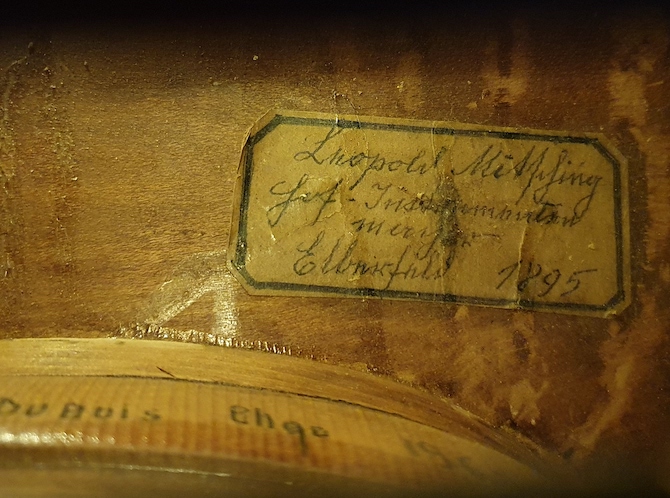 Leopold Mitsching
Hof-Instrumenten
macher
Elberfeld 1895
DuBois Chgo